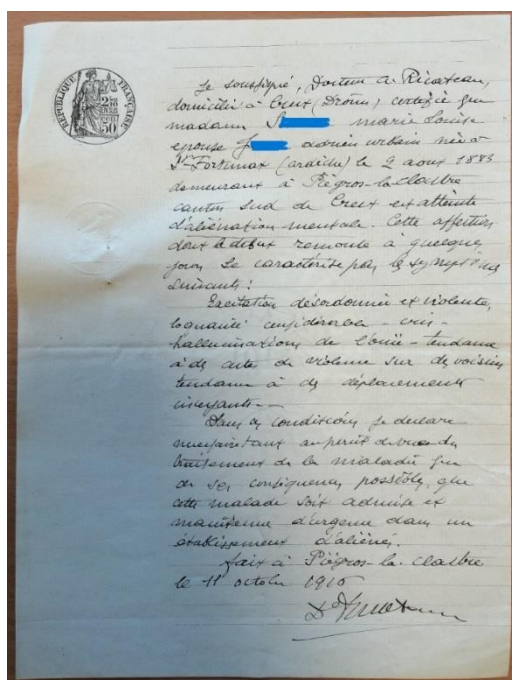 RÉPUBLIQUE FRANÇAISE
50
Je soussigné, Docteur A. Ricateau,
domicilié à Crest (Drôme) certifie que
madame S marie Louise
épouse J adrien urbain née à
St Fortunat (ardèche) le 2 aout 1883
demeurant à Piégros-la-Clastre
canton sud de Crest est atteinte
d'aliénation mentale. Cette affection
dont le début remonte à quelques
jours se caractérise par les symptômes
suivants :
Excitation désordonnée et violente,
loquacité considérable - cris -
hallucinations de l'ouïe - tendance
à des actes de violence sur des voisins
tendance à des déplacements
incessants -
Dans ces conditions je déclare
nécessaire tant au point de vue du
traitement de la maladie que
de ses conséquences possibles, que
cette malade soit admise et
maintenue d'urgence dans un
établissement d'aliénés.
fait à Piégros-la-Clastre
le 11 octobre 1916